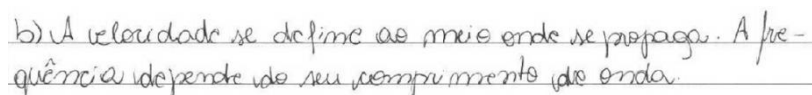 b) A velocidade se define ao meio onde se propaga. A fre-
quência depende do seu comprimento de onda.